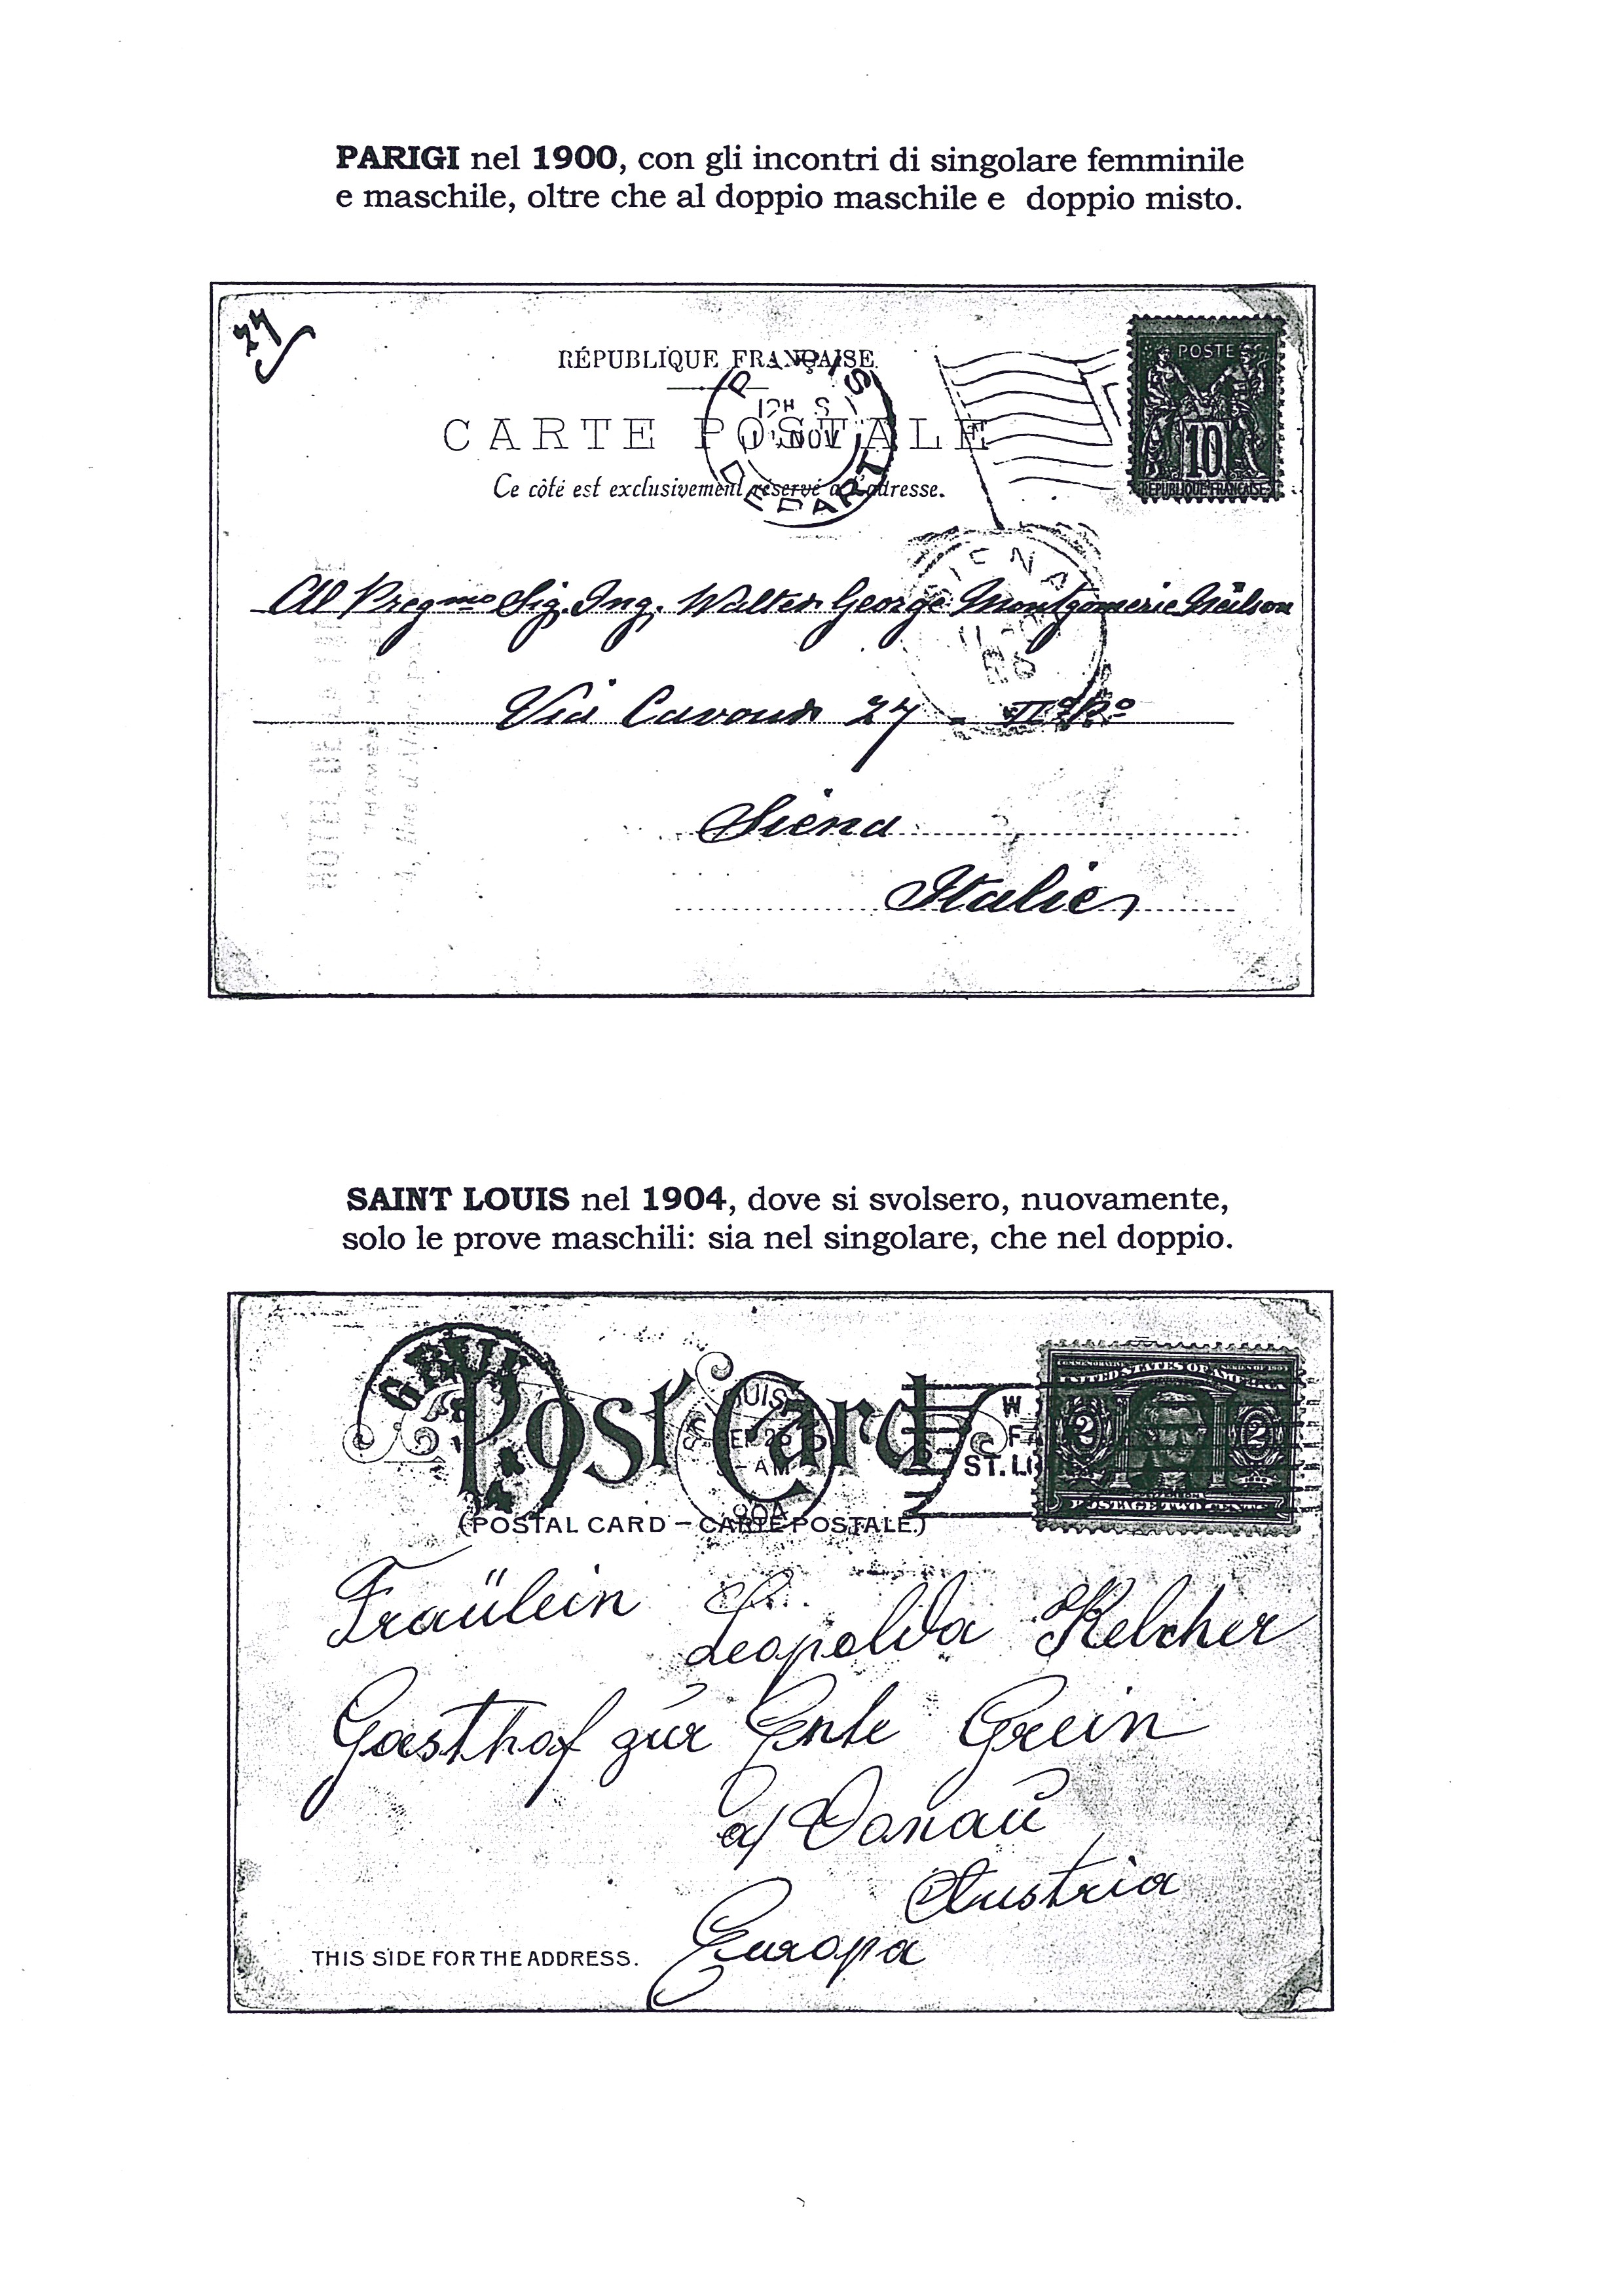 PARIGI nel 1900, con gli incontri di singolare femminile
e maschile, oltre che al doppio maschile e doppio misto.
24
RÉPUBLIQUE FRANÇAISE
CARTE POSTALE
Ce côté est exclusivement réservé à l'adresse.
DEPART
12H S
NOV
POSTE
10
REPUBLIQUE FRANÇAISE
SIENA
Al Pregmo Sig. Ing. Walter George Montgomerie Neilson
Via Cavour 27
Siena
Italie
SAINT LOUIS nel 1904, dove si svolsero, nuovamente,
solo le prove maschili: sia nel singolare, che nel doppio.
Post Card
(POSTAL CARD – CARTE POSTALE.)
AM
ST. LO
UNITED STATES OF AMERICA
2 2
POSTAGE TWO CENTS
Fraülein
Leopolda Kelcher
Gasthof zur Ente Grein
a/ Donau
Austria
Europa
THIS SIDE FOR THE ADDRESS.